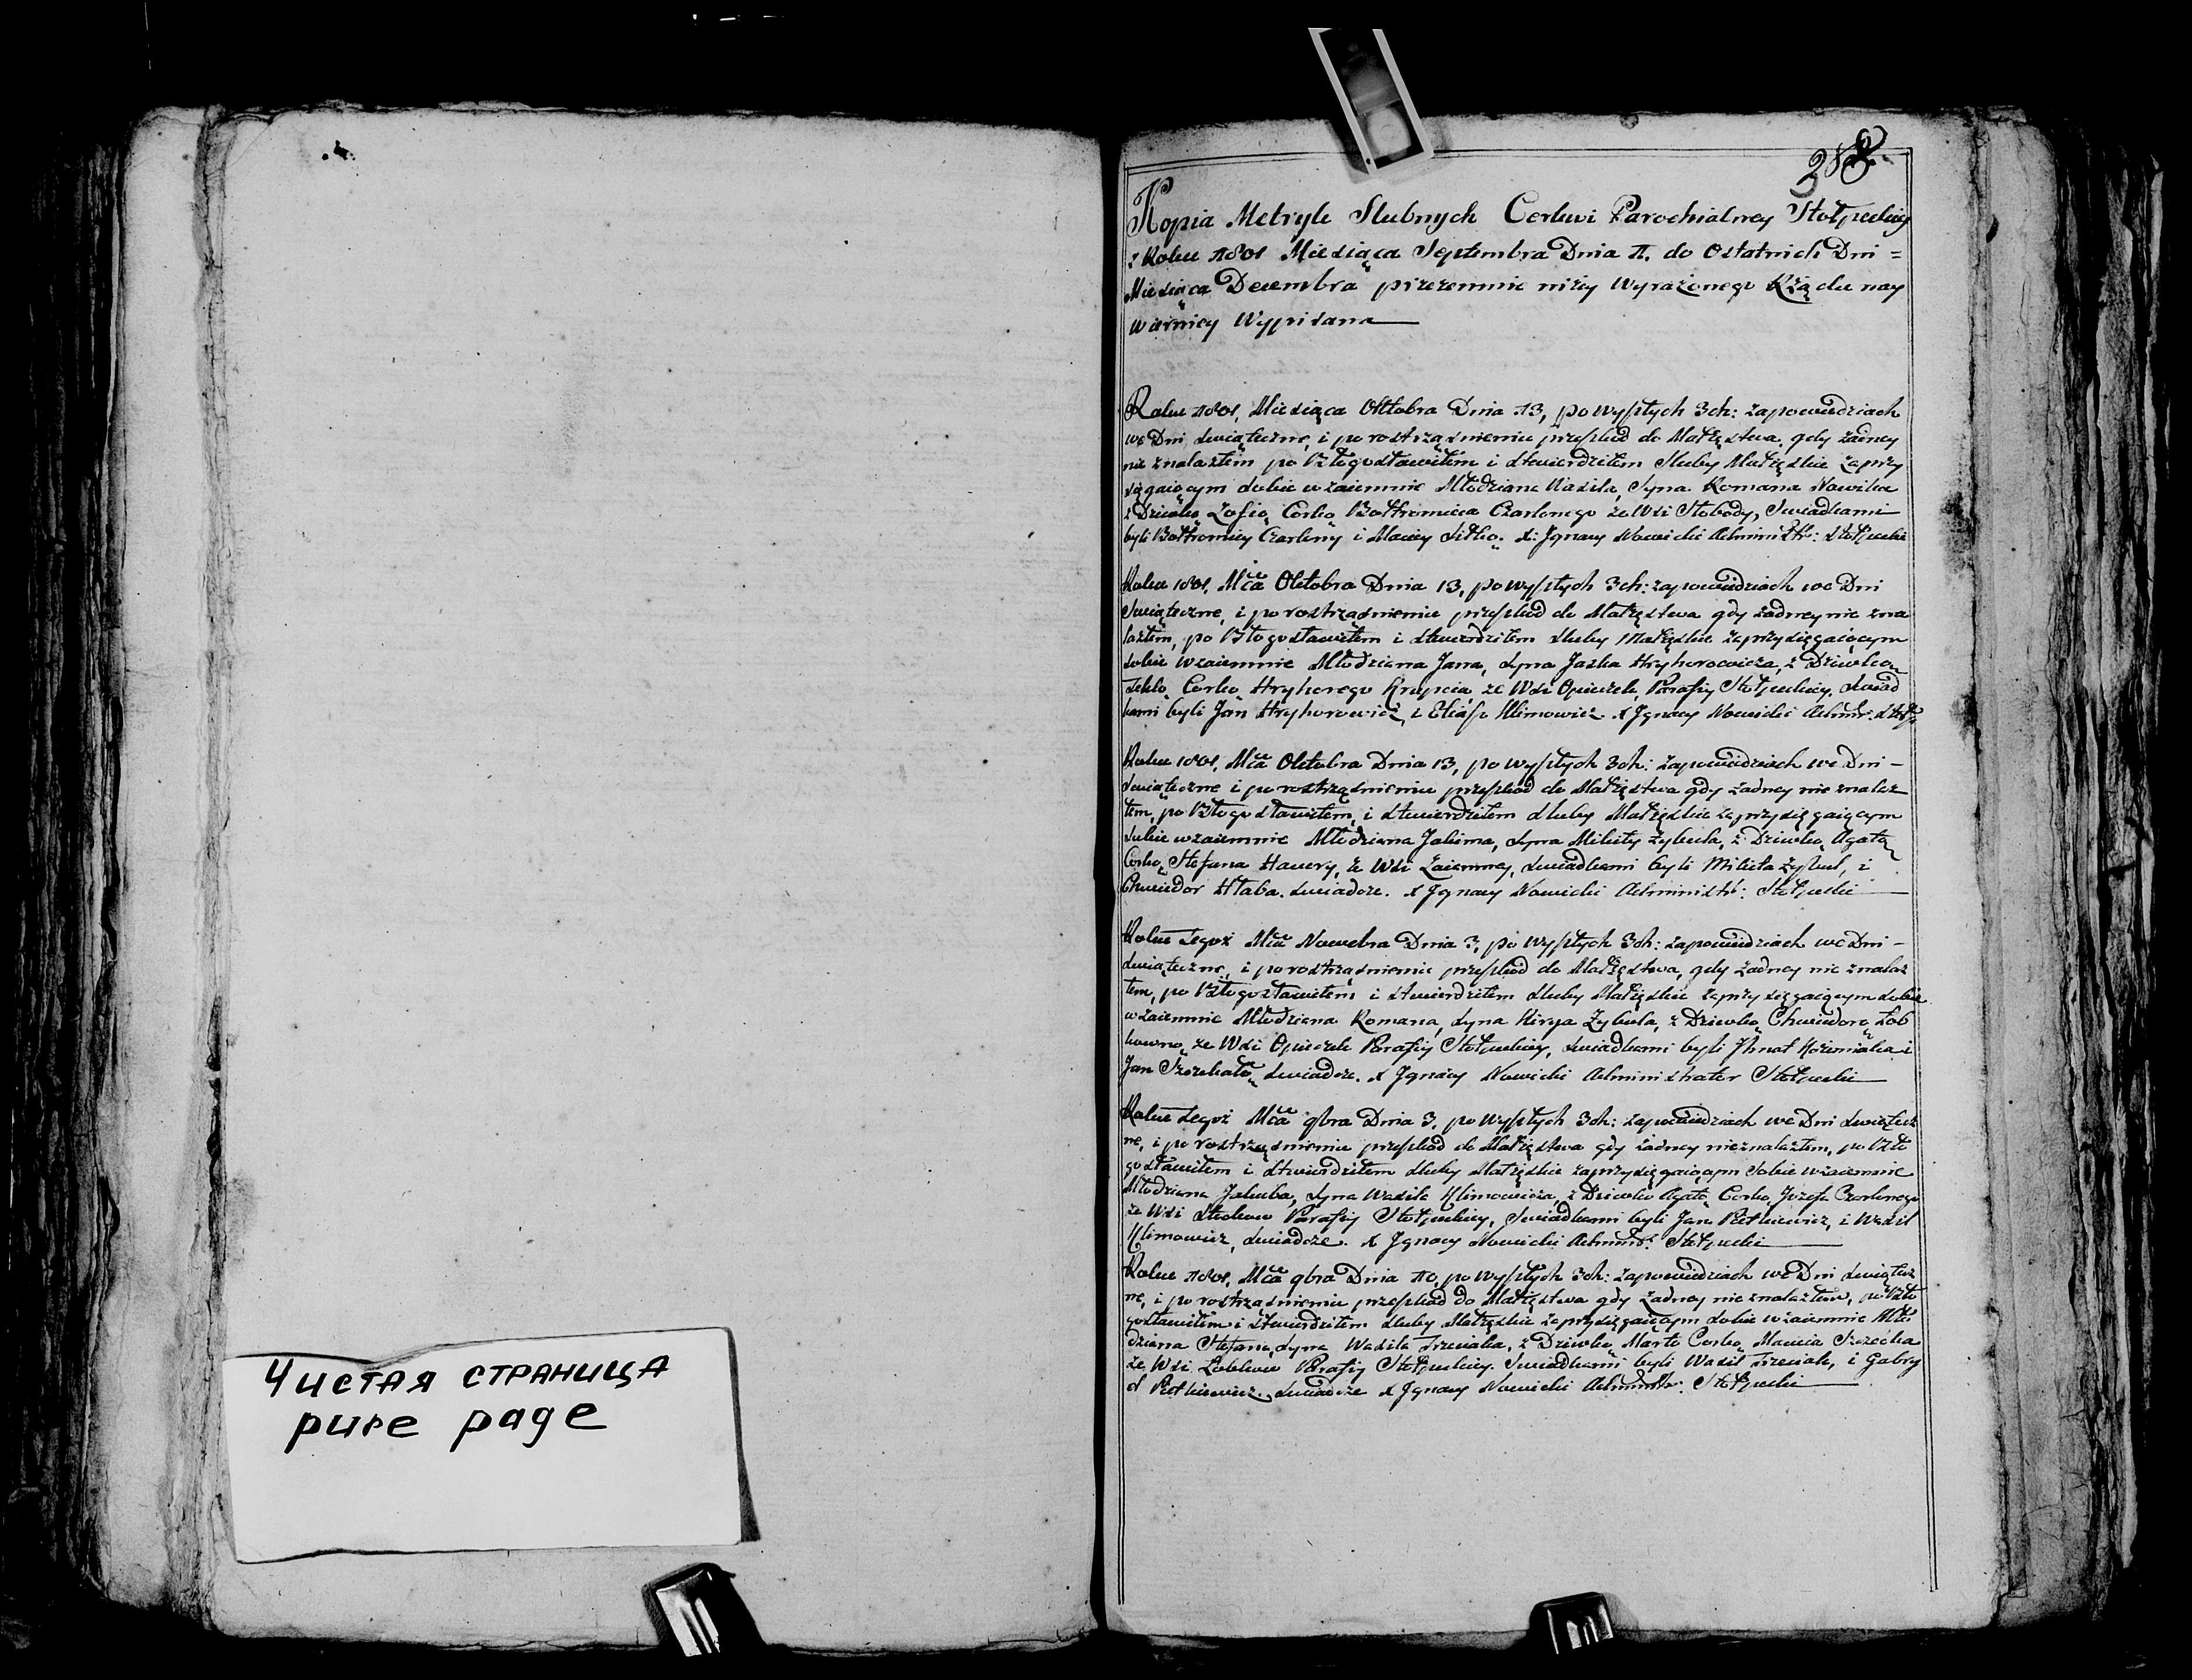 Чистая страница
pure page
Kopia Metryk Slubnych Cerkwi Parochialney Stołpeckiey
z Roku 1801 Miesiąca Septembra Dnia 1. do Ostatnich Dni =
Miesiąca Decembra przezemnie niżey wyrażonego Rządcu nay
wierniey Wypisana
Roku 1801, Miesiąca Oktobra Dnia 13, po wyszłych 3ch: zapowiedziach
we Dni swiąteczne, i po rostrząsnieniu przeszkod do Małżęstwa, gdy żadney
nie znalazłem po Błłogosławiłem i stwierdziłem Sluby Małżęskie zaprzy
sięgaiącym sobie wzaiemnie Młodziana Wasila, Syna Romana Nowika
z Dziewką Zofią Corką Bołtromieia Czarlonego ze Wsi Słobody, Swiadkami
byli Bołtromiey Czarlony i Maciey Sitko. X: Jgnacy Nowicki Administr: Stołpecki
Roku 1801, Mca Oktobra Dnia 13, po wyszłych 3ch: zapowiedziach we Dni
Swiąteczne, i po rostrząsnieniu przeszkod do Małżęstwa gdy żadney nie zna
lazłem, po Błłogosławiłem i stwierdziłem sluby Małżęskie zaprzysięgaiącym
sobie wzaiemnie Młodziana Jana, Syna Jaska Hryhorowicza, z Dziewką
Teklą, Corką Hryhorego, ze Wsi Opieczek, Parafiy Stołpeckiey, Swiad
kami byli Jan Hryhorowicz, i Eliasz Klimowicz X Jgnacy Nowicki Admin: Stołp
Roku 1801, Mca Oktobra Dnia 13, po wyszłych 3ch: zapowiedziach we Dni -
Swiąteczne i po rostrząsnieniu przeszkod do Małżęstwa gdy żadney nie znalaz
łem, po Błłogosławiłem, i stwierdziłem sluby Małżęskie zaprzysięgaiącym
sobie wzaiemnie Młodziana Jakima, Syna Mikity Zybula, z Dziewką Agatą
Corką Stefana, ze Wsi Zaiamney, swiadkami byli Mikita Zybul, i
Chwiedor Hłaba. swiadcze. X Jgnacy Nowicki Administr: Stołpecki
Roku tegoż Mca Nowebra Dnia 3, po wyszłych 3ch: zapowiedziach we Dni -
swiąteczne, i po rostrząsnieniu przeszkod do Małżęstwa, gdy żadney nie znalaz
łem, po Błłogosławiłem i stwierdziłem sluby Małżęskie zaprzysięgaiącym sobie
wzaiemnie Młodziana Romana, syna Kiryia Zybula, z Dziewką Chwiedorą
ze Wsi Opieczek Parafiy Stołpeckiey, swiadkami byli Jhnat i
Jan swiadcze. X Jgnacy Nowicki Administrator Stołpecki
Roku tegoż Mca 9bra Dnia 3, po wyszłych 3ch: zapowiedziach we Dni swiątecz
ne, i po rostrząsnieniu przeszkod do Małżęstwa gdy żadney nieznalazłem, po Błło
gosławiłem i stwierdziłem sluby Małżęskie zaprzysięgaiącym sobie wzaiemnie
Młodziana Jakuba, syna Wasila Klimowicza, z Dziewką Agatą Corką Jozefa Czarlonego
ze Wsi Parafiy Stołpeckiey, swiadkami byli Jan Piotkiewicz, i Wasil
Klimowicz, swiadcze. X Jgnacy Nowicki Admin: Stołpecki
Roku 1801, Mca 9bra Dnia 10, po wyszłych 3ch: zapowiedziach we Dni swiątecz
ne, i po rostrząsnieniu przeszkod do Małżęstwa gdy żadney nie znalazłem, po Błło
gosławiłem i stwierdziłem sluby Małżęskie zaprzysięgaiącym sobie wzaiemnie Mło
dziana Stefana, syna Wasila Trzeciaka, z Dziewką Martą Corką Macieia
ze Wsi Parafiy Stołpeckiey. Swiadkami byli Wasil Trzeciak, i Gabry
el Piotkiewicz. swiadcze X Jgnacy Nowicki Administr: Stołpecki